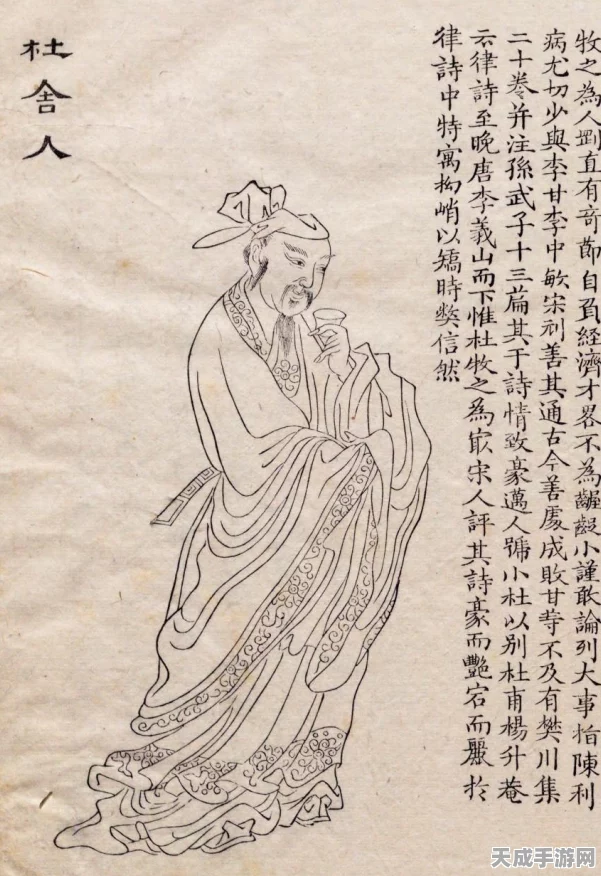 牧之為人剛直有奇節自負經濟才畧不為齷齪小謹敢論列大事指陳利
病尤切少與李甘李中敏宋刓善其通古今善處成敗甘等不及有樊川集
二十卷并注孫武子十三篇其于詩情致豪邁人號小杜以别杜甫楊升菴
云律詩至晚唐李義山而下惟杜牧之為㝡宋人評其詩豪而艷宕而麗於
律詩中特寓拗峭以矯時弊信然
杜舍人
天成手游网